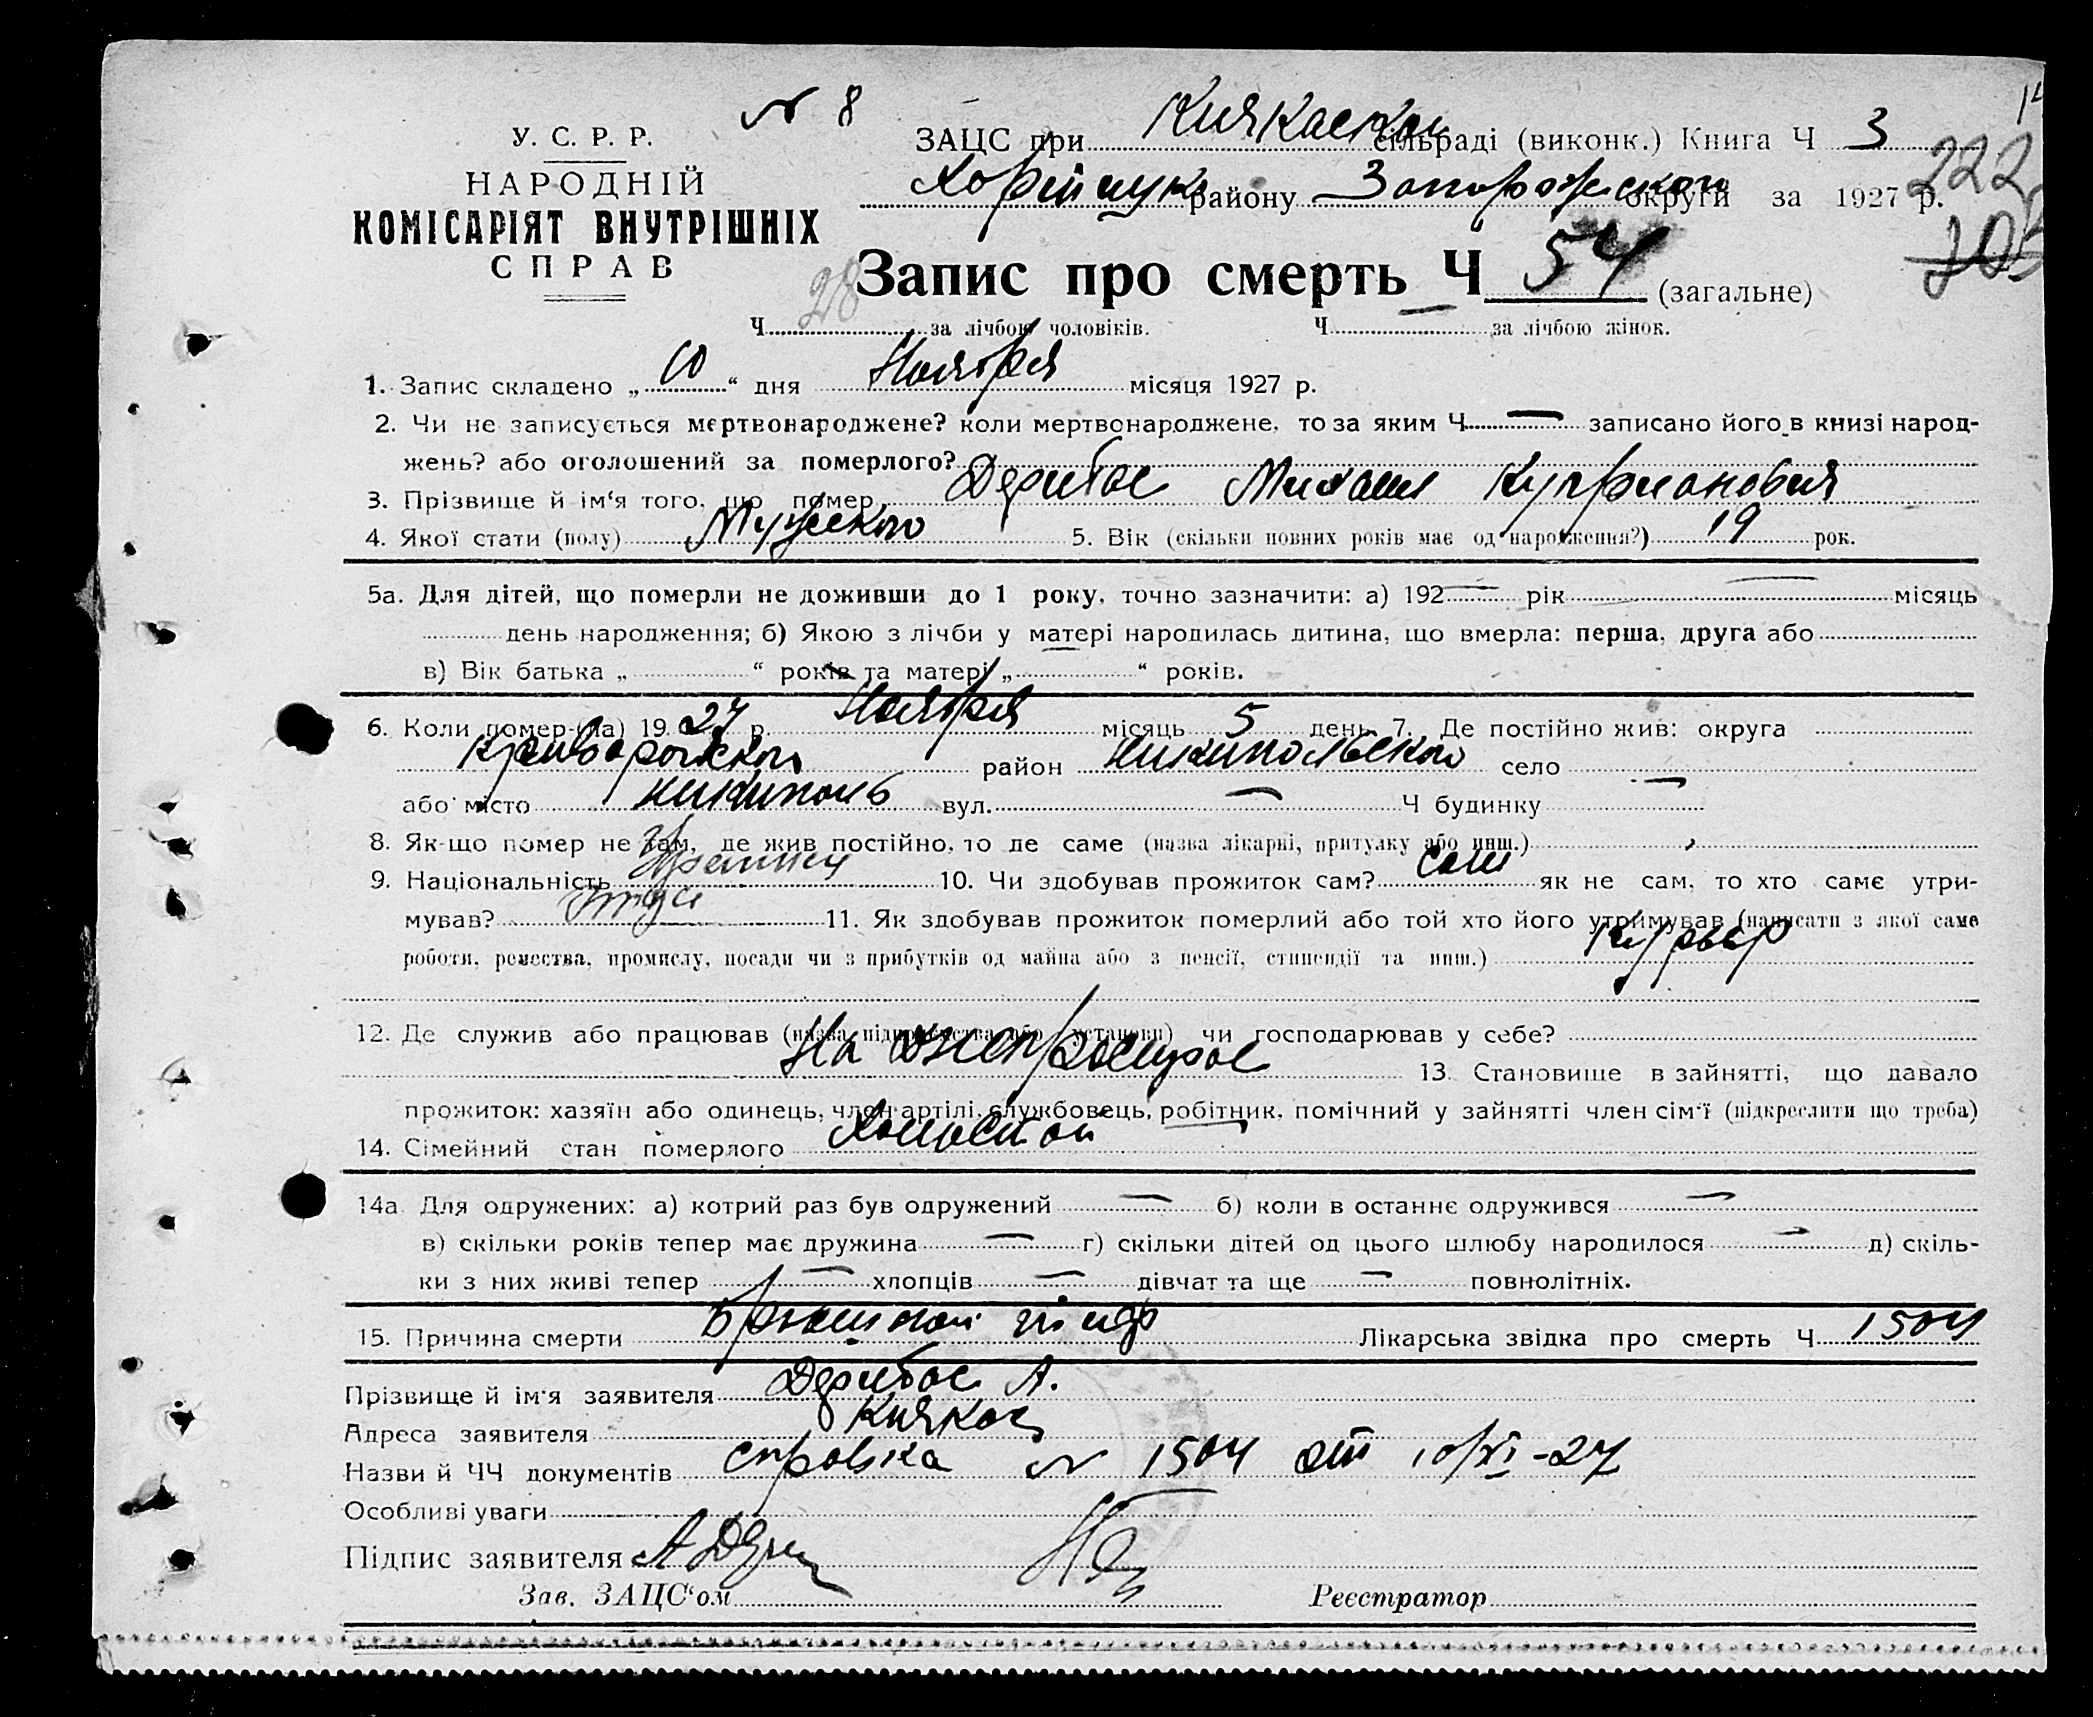 № 8
У. С. Р. Р.
НАРОДНІЙ
КОМІСАРІЯТ ВНУТРІШНІХ
СПРАВ
ЗАЦС при Кичкаской сільраді (виконк.) Книга Ч 3
222
района Запорожской округи за 1927 р.
Запис про смерть Ч 54 (загальне)
Ч 28 за лічбою чоловіків. Ч — за лічбою жінок.
1. Запис складено „ 10 “ дня Ноября місяця 1927 р.
2. Чи не записується мертвонароджене? коли мертвонароджене, то за яким Ч — записано його в книзі народ-
жень? або оголошений за померлого?
3. Прізвище й ім‘я того, що помер Дерибас Михаил Куприанович
4. Якої стати (полу) Мужского 5. Вік (скільки повних років має од народження?) 19 рок.
5а. Для дітей, що померли не доживши до 1 року, точно зазначити: а) 192 — рік — місяць
день народження; б) Якою з лічби у матері народилась дитина, що вмерла: перша, друга або
в) Вік батька „ “ років та матері „ “ років.
6. Коли помер-(ла) 19 27 р. Ноября місяць 5 день 7. Де постійно жив: округа
Криворожского район Никипольского село —
або місто Никиполь вул. — Ч будинку
8. Як-що помер не там, де жив постійно, то де саме (назва лікарні, притулку або инш.)
9. Національність 10. Чи здобував прожиток сам? Сам як не сам, то хто саме утри-
мував? 11. Як здобував прожиток померлий або той хто його утримував (написати з якої саме
роботи, ремества, промислу, посади чи з прибутків од майна або з пенсії, стипендії та инш.) Курьер
12. Де служив або працював (назва підприємства або установи) чи господарював у себе?
На Днепрострое 13. Становище в зайнятті, що давало
прожиток: хазяїн або одинець, член артілі, службовець, робітник, помічний у зайнятті член сім‘ї (підкреслити що треба)
14. Сімейний стан померлого Холостой
14а Для одружених: а) котрий раз був одружений — б) коли в останнє одружився —
в) скільки років тепер має дружина — г) скільки дітей од цього шлюбу народилося — д) скіль-
ки з них живі тепер — хлопців — дівчат та ще — повнолітніх.
15. Причина смерти Брюшной тиф Лікарська звідка про смерть Ч 1504
Прізвище й ім‘я заявителя Дерибас А.
Адреса заявителя Кичкас
Назви й ЧЧ документів справка № 1504 от 10/XI-27
Особливі уваги
Підпис заявителя
Зав. ЗАЦС‘ом Реєстратор